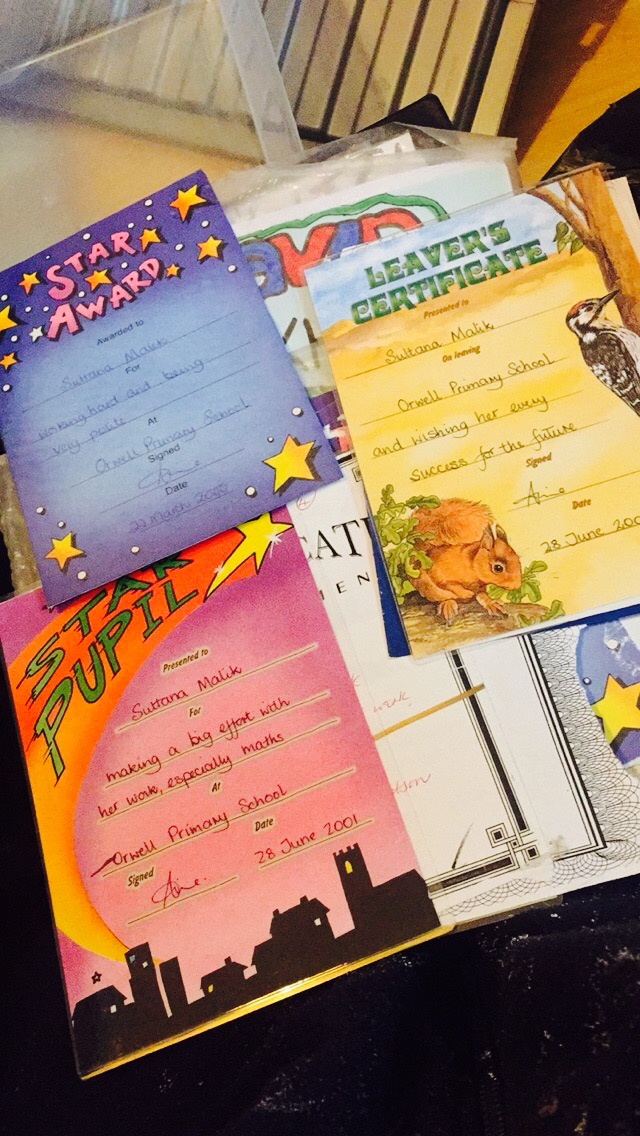 STAR
AWARD
Awarded to
Sultana Malik
For
working hard and being
very polite
At
Orwell Primary School
Signed
Date
22 March 2000
LEAVER'S
CERTIFICATE
Presented to
Sultana Malik
On leaving
Orwell Primary School
and wishing her every
success for the future
Signed
Date
28 June 2001
STAR
PUPIL
Presented to
Sultana Malik
For
making a big effort with
her work, especially maths
At
Orwell Primary School
Date
Signed
28 June 2001